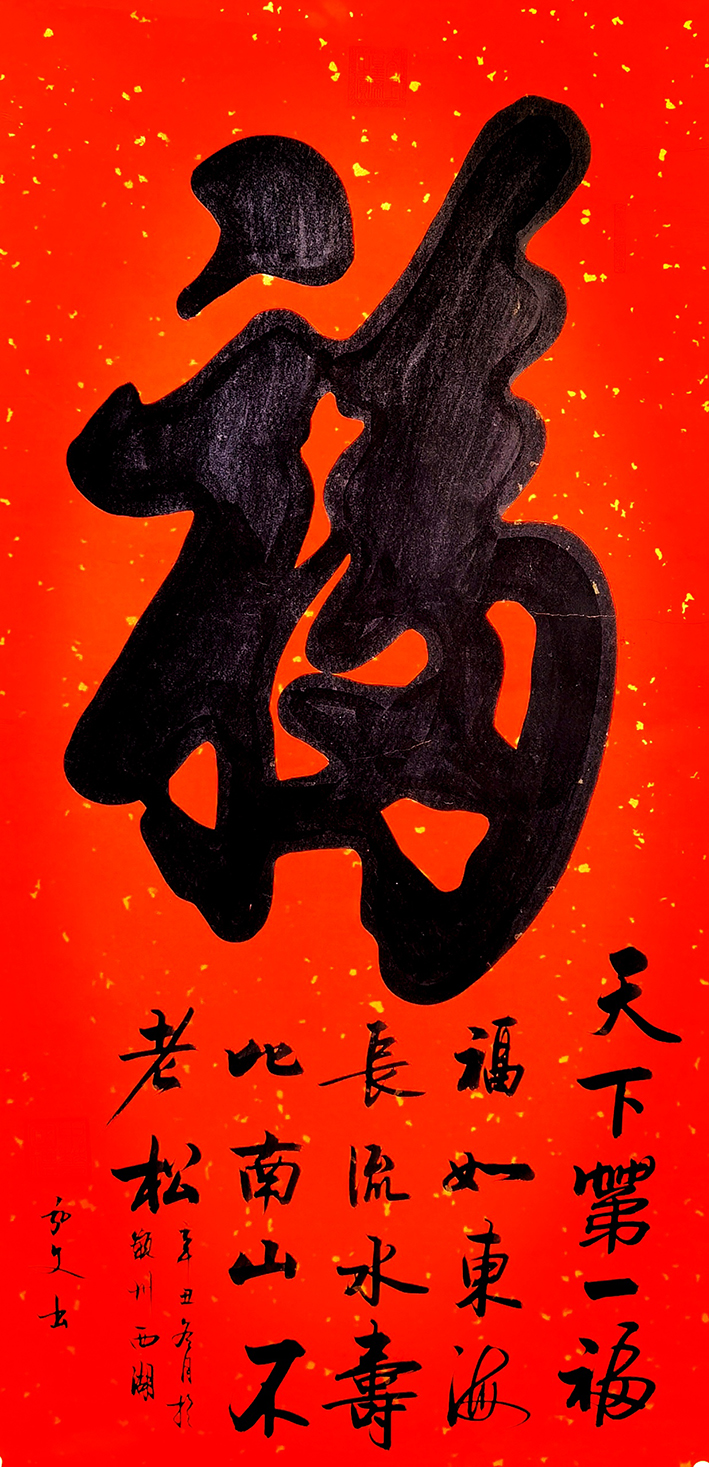 福
天下第一福
福如東海
長流水壽
比南山不
老松
辛丑冬月於
颍州西湖
文书